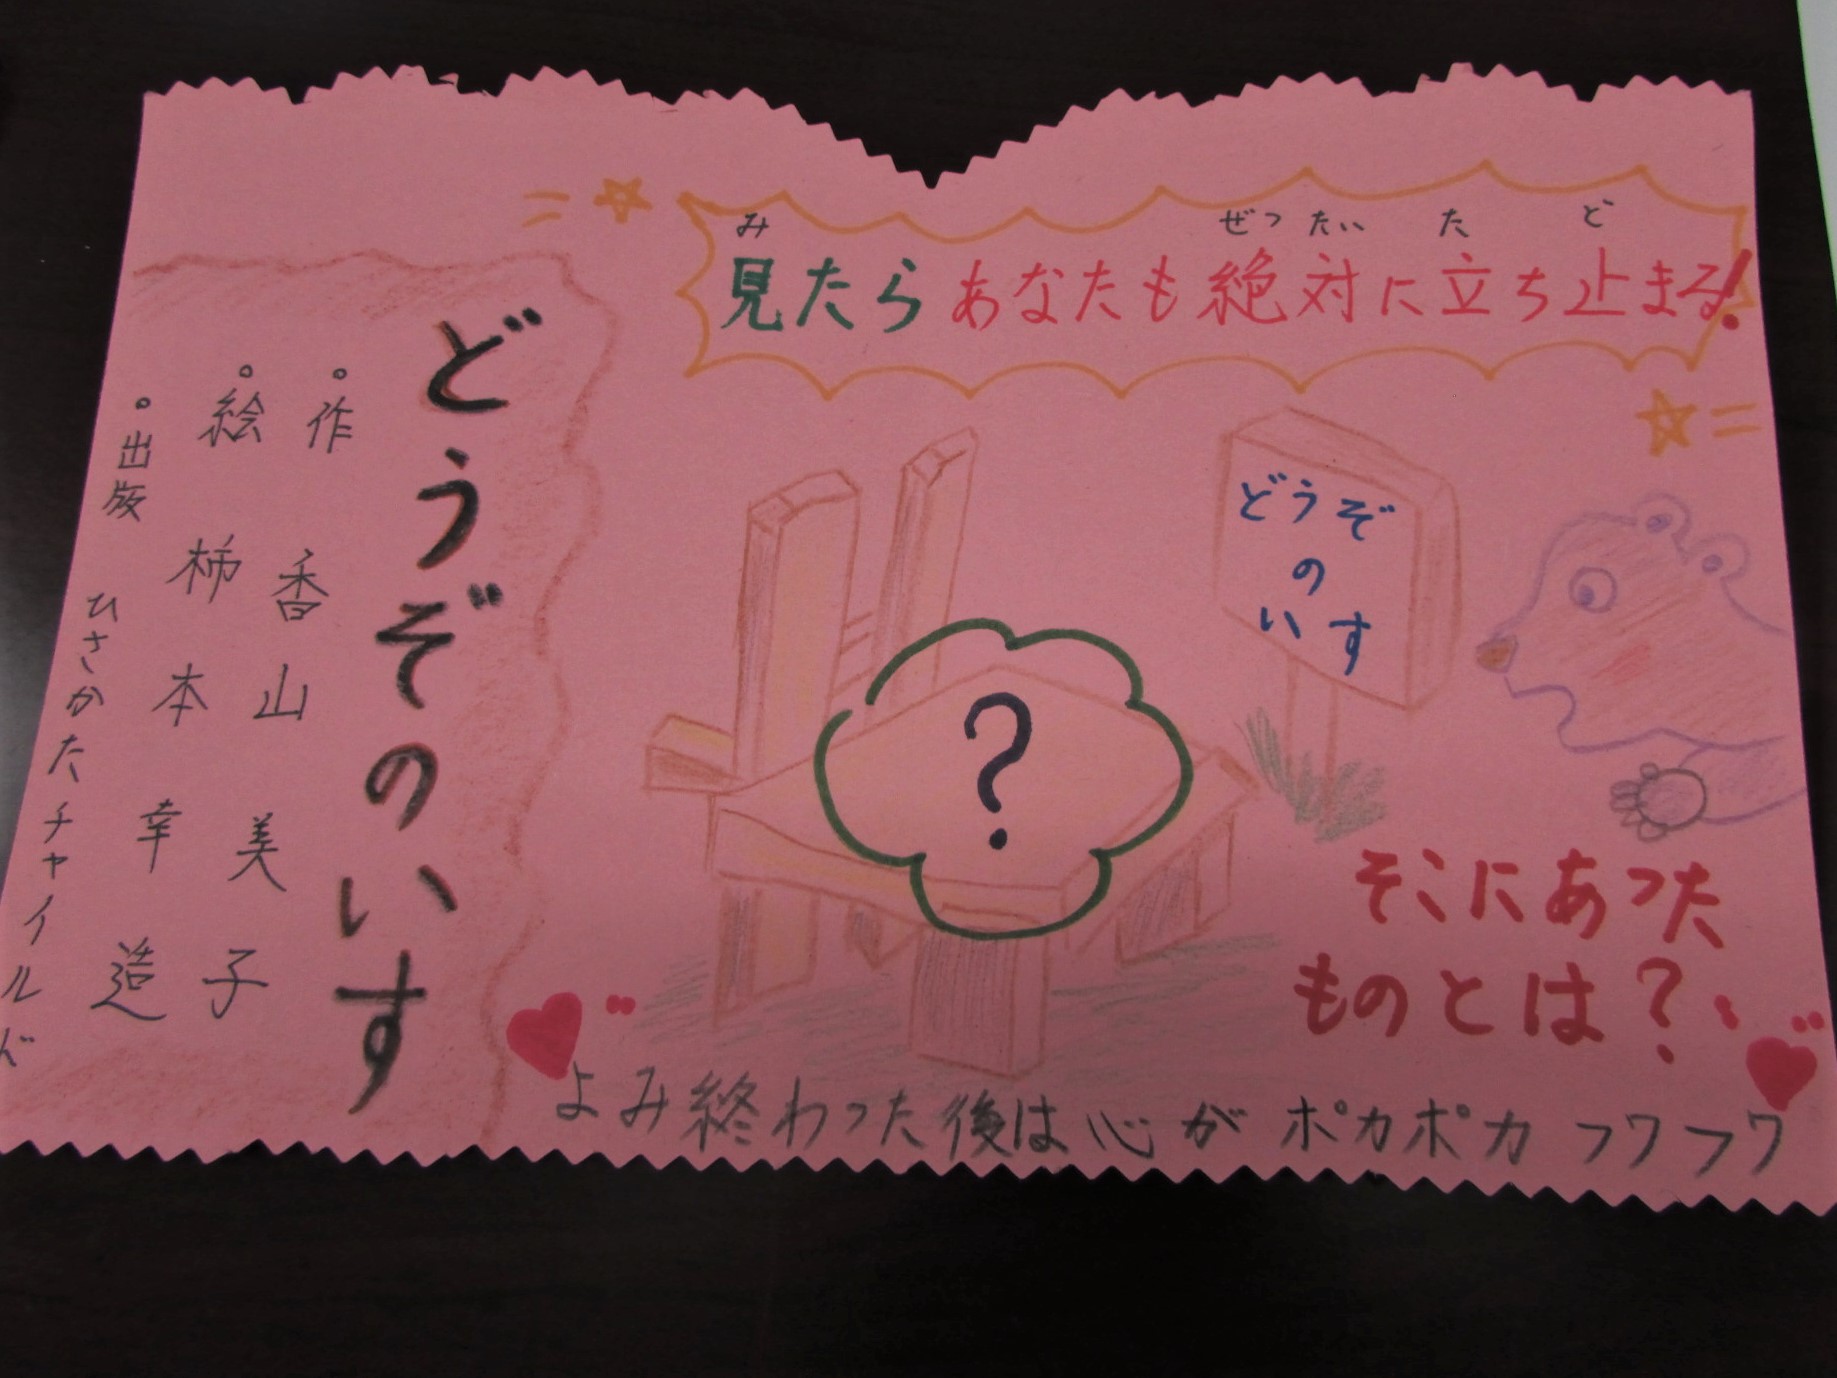 見たらあなたも絶対に立ち止まる!
み ぜったい た ど
どうぞのいす
・作 香山美子
・絵 柿本幸造
・出版 ひさかたチャイルド
どうぞ
の
いす
?
そこにあった
ものとは?
よみ終わった後は心がポカポカフワフワ